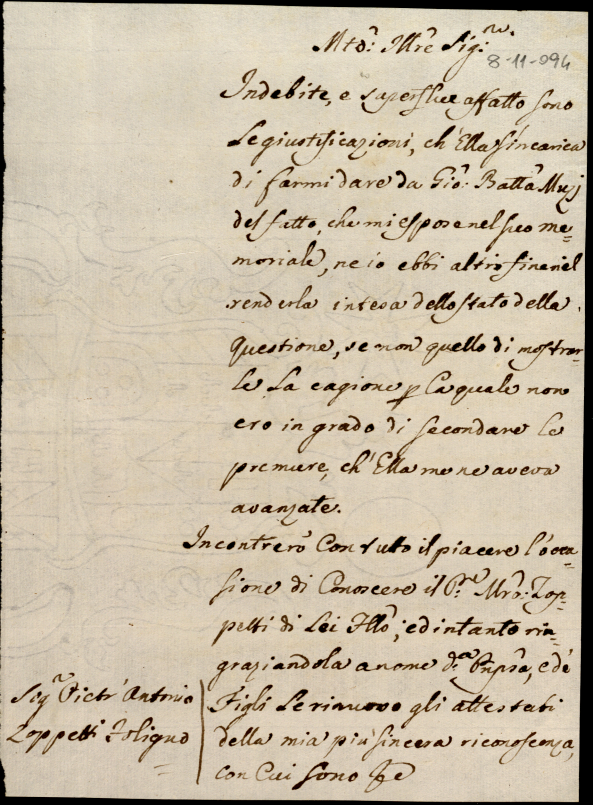 Mto: Illre Sig:re
8-11-094
Indebite, e superflue affatto sono
le giustificazioni, ch'Ella s'incarica
di farmi dare da Gio: Batta Muzj
del fatto, che mi espose nel suo me=
moriale, ne io ebbi altro fine nel
renderla intesa dello stato della
questione, se non quello di mostrar=
le la cagione p la quale non
ero in grado di secondare le
premure, ch'Ella me ne aveva
avanzate.
Incontrerò con tutto il piacere l'occa=
sione di conoscere il Pre Mro: Zop=
petti di Lei Fllo; ed intanto rin=
graziandola a nome d:a Pnpssa, e de'
Figli le rinuovo gli attestati
della mia più sincera riconoscenza,
con cui sono
Sigr Pietr'Antonio
Zoppetti Foligno